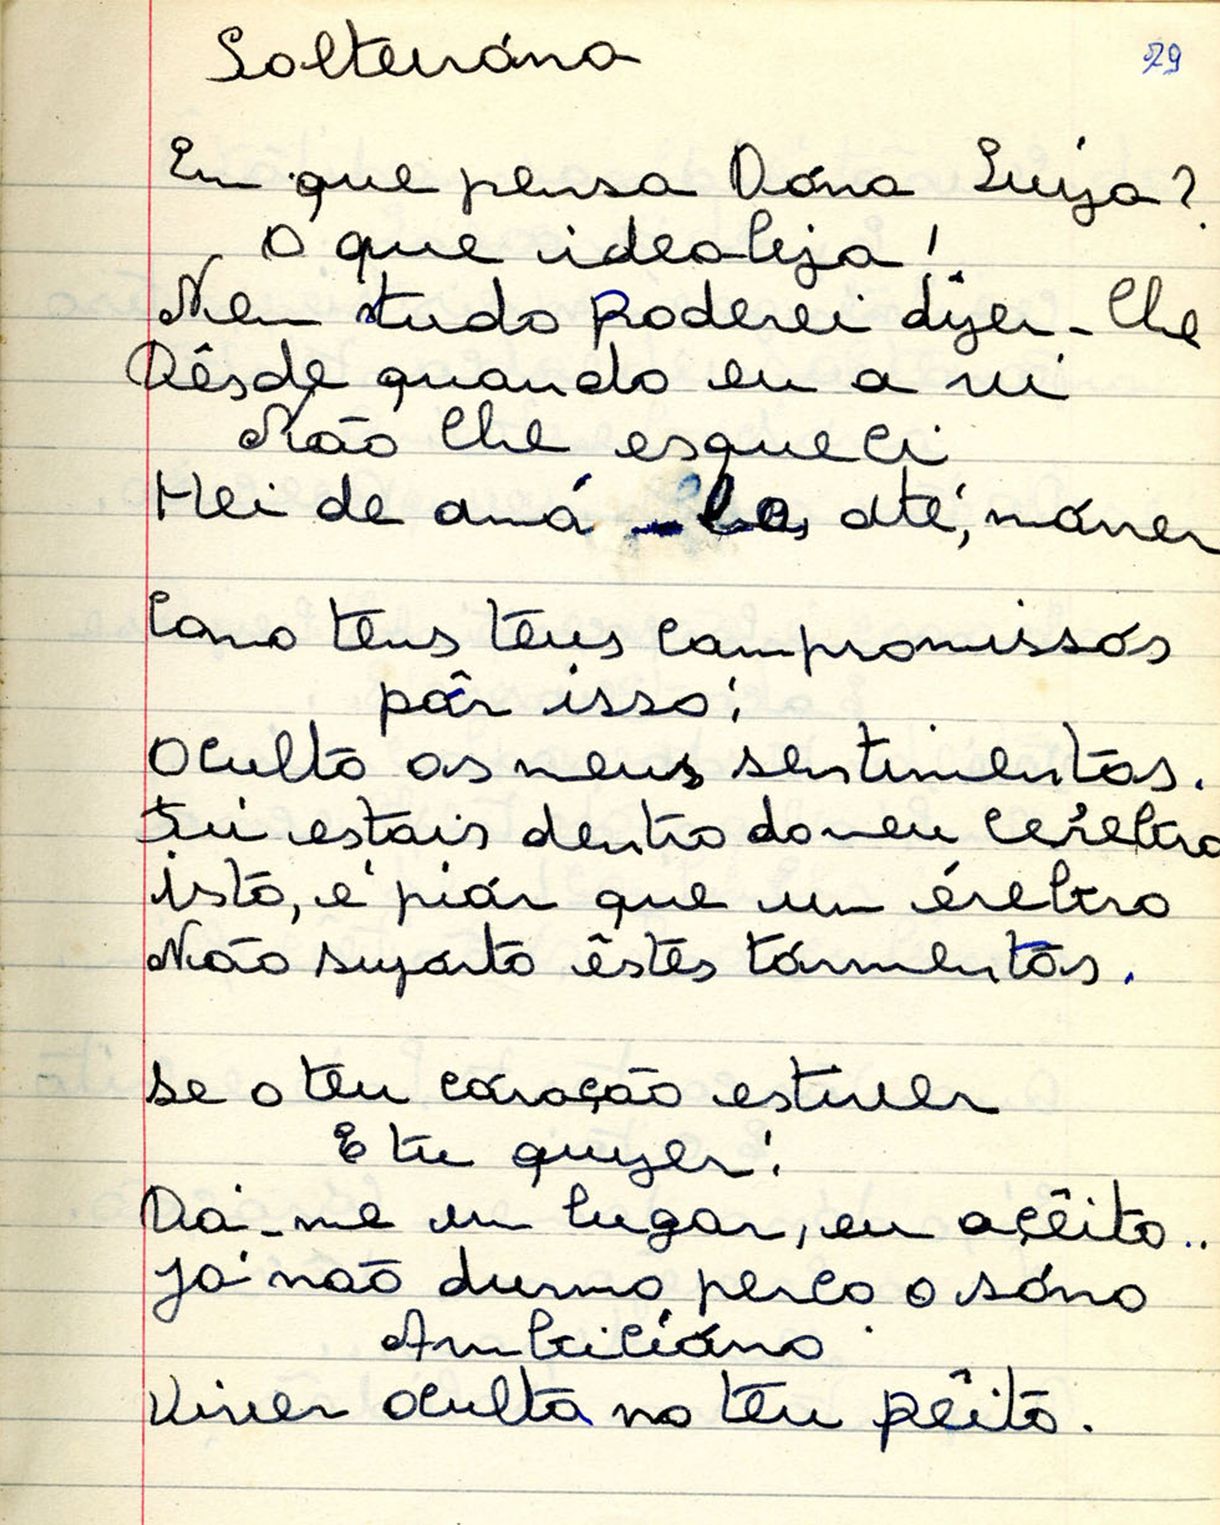 Solteiróna
79
Em que pensa Dóna Luiza?
O que idealiza!
Nem tudo poderei dizer-lhe
Dêsde quando eu a vi
Não lhe esqueci
Hei de amá-la, até, mórrer
Como tens teus compromissós
pôr isso;
Oculto os meus sentimentos.
Tu estais dentro do meu cérebro
isto, é piór que um érebro
Não suporto êstes tórmentos.
Se o teu córação estiver
E tu quizer!
Dá-me um lugar, eu açêito..
Já não durmo perco o sóno
Ambicióno
Viver oculta no teu pêito.